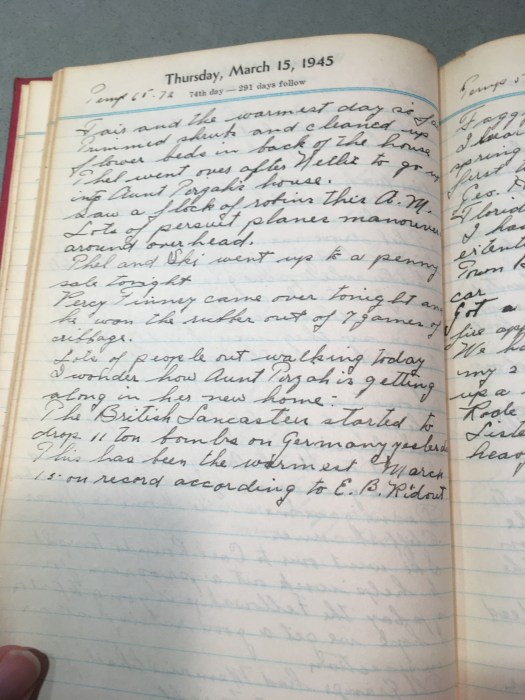 Thursday, March 15, 1945
Temp 65-72 74th day — 291 days follow
Fair and the warmest day so far
Trimmed shrubs and cleaned up
flower beds in back of the house
Phel went over after Nellie to go up
into Aunt Tirzah's house.
Saw a flock of robins this A.M.
Lots of persuit planes manouver
around overhead.
Phel and went up to a penny
sale tonight
Percy Tinney came over tonight and
he won the rubber out of 7 games of
cribbage.
Lots of people out walking today
I wonder how Aunt Tirzah is getting
along in her new home.
The British Lancasters started to
drop 11 ton bombs on Germany yesterday
This has been the warmest March
15 on record according to E. B. Rideout
Temp
spring
first
Geo.
Florid
I ha
Town
car
Got a
fire app
We ha
my 2
up a
Rode
Liste
heav